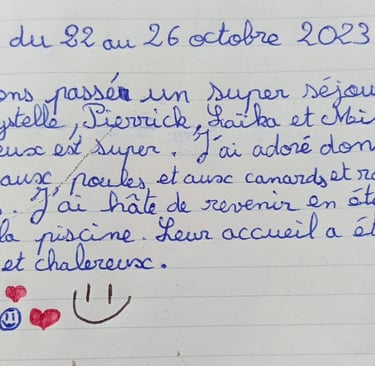 du 22 au 26 octobre 2023
ons passé un super séjou
ystelle, Pierrick, Laïka et Mi
eux est super. J'ai adoré don
aux poules, et aux canards et
. J'ai hâte de revenir en ét
la piscine. Leur accueil a ét
et chalereux.